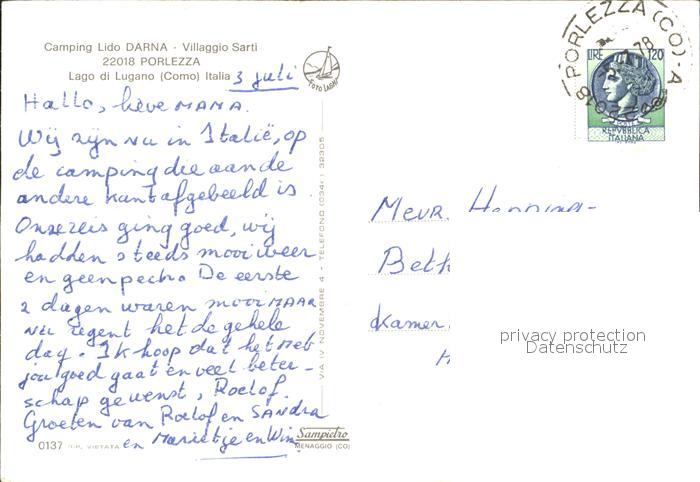 Camping Lido DARNA - Villaggio Sarti
22018 PORLEZZA
Lago di Lugano (Como) Italia
3 juli
FOTO LAGHI
Hallo, lieve MAMA.
Wij zijn nu in Italië, op
de camping die aan de
andere kant afgebeeld is.
Onze reis ging goed, wij
hadden steeds mooi weer
en geen pech. De eerste
2 dagen waren mooi MAAR
nu regent het de gehele
dag. Ik hoop dat het met
jou goed gaat en veel beter-
schap gewenst, Roelof.
Groeten van Roelof en SANDRA
en Marietje en Wim
0137 RIP. VIETATA
Sampietro
MENAGGIO (CO)
VIA IV NOVEMBRE 4 - TELEFONO (0344) 32305
PORLEZZA (CO) - A
22018
78
LIRE 120
POSTE
REPVBBLICA
ITALIANA
Mevr. Henning-
Beth
Kamer
H
privacy protection
Datenschutz